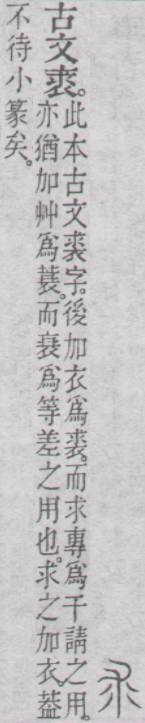 求
古文裘。
此本古文裘字。後加衣爲裘。而求專爲干請之用。
亦猶加艸爲蓑。而衰爲等差之用也。求之加衣。葢
不待小篆矣。